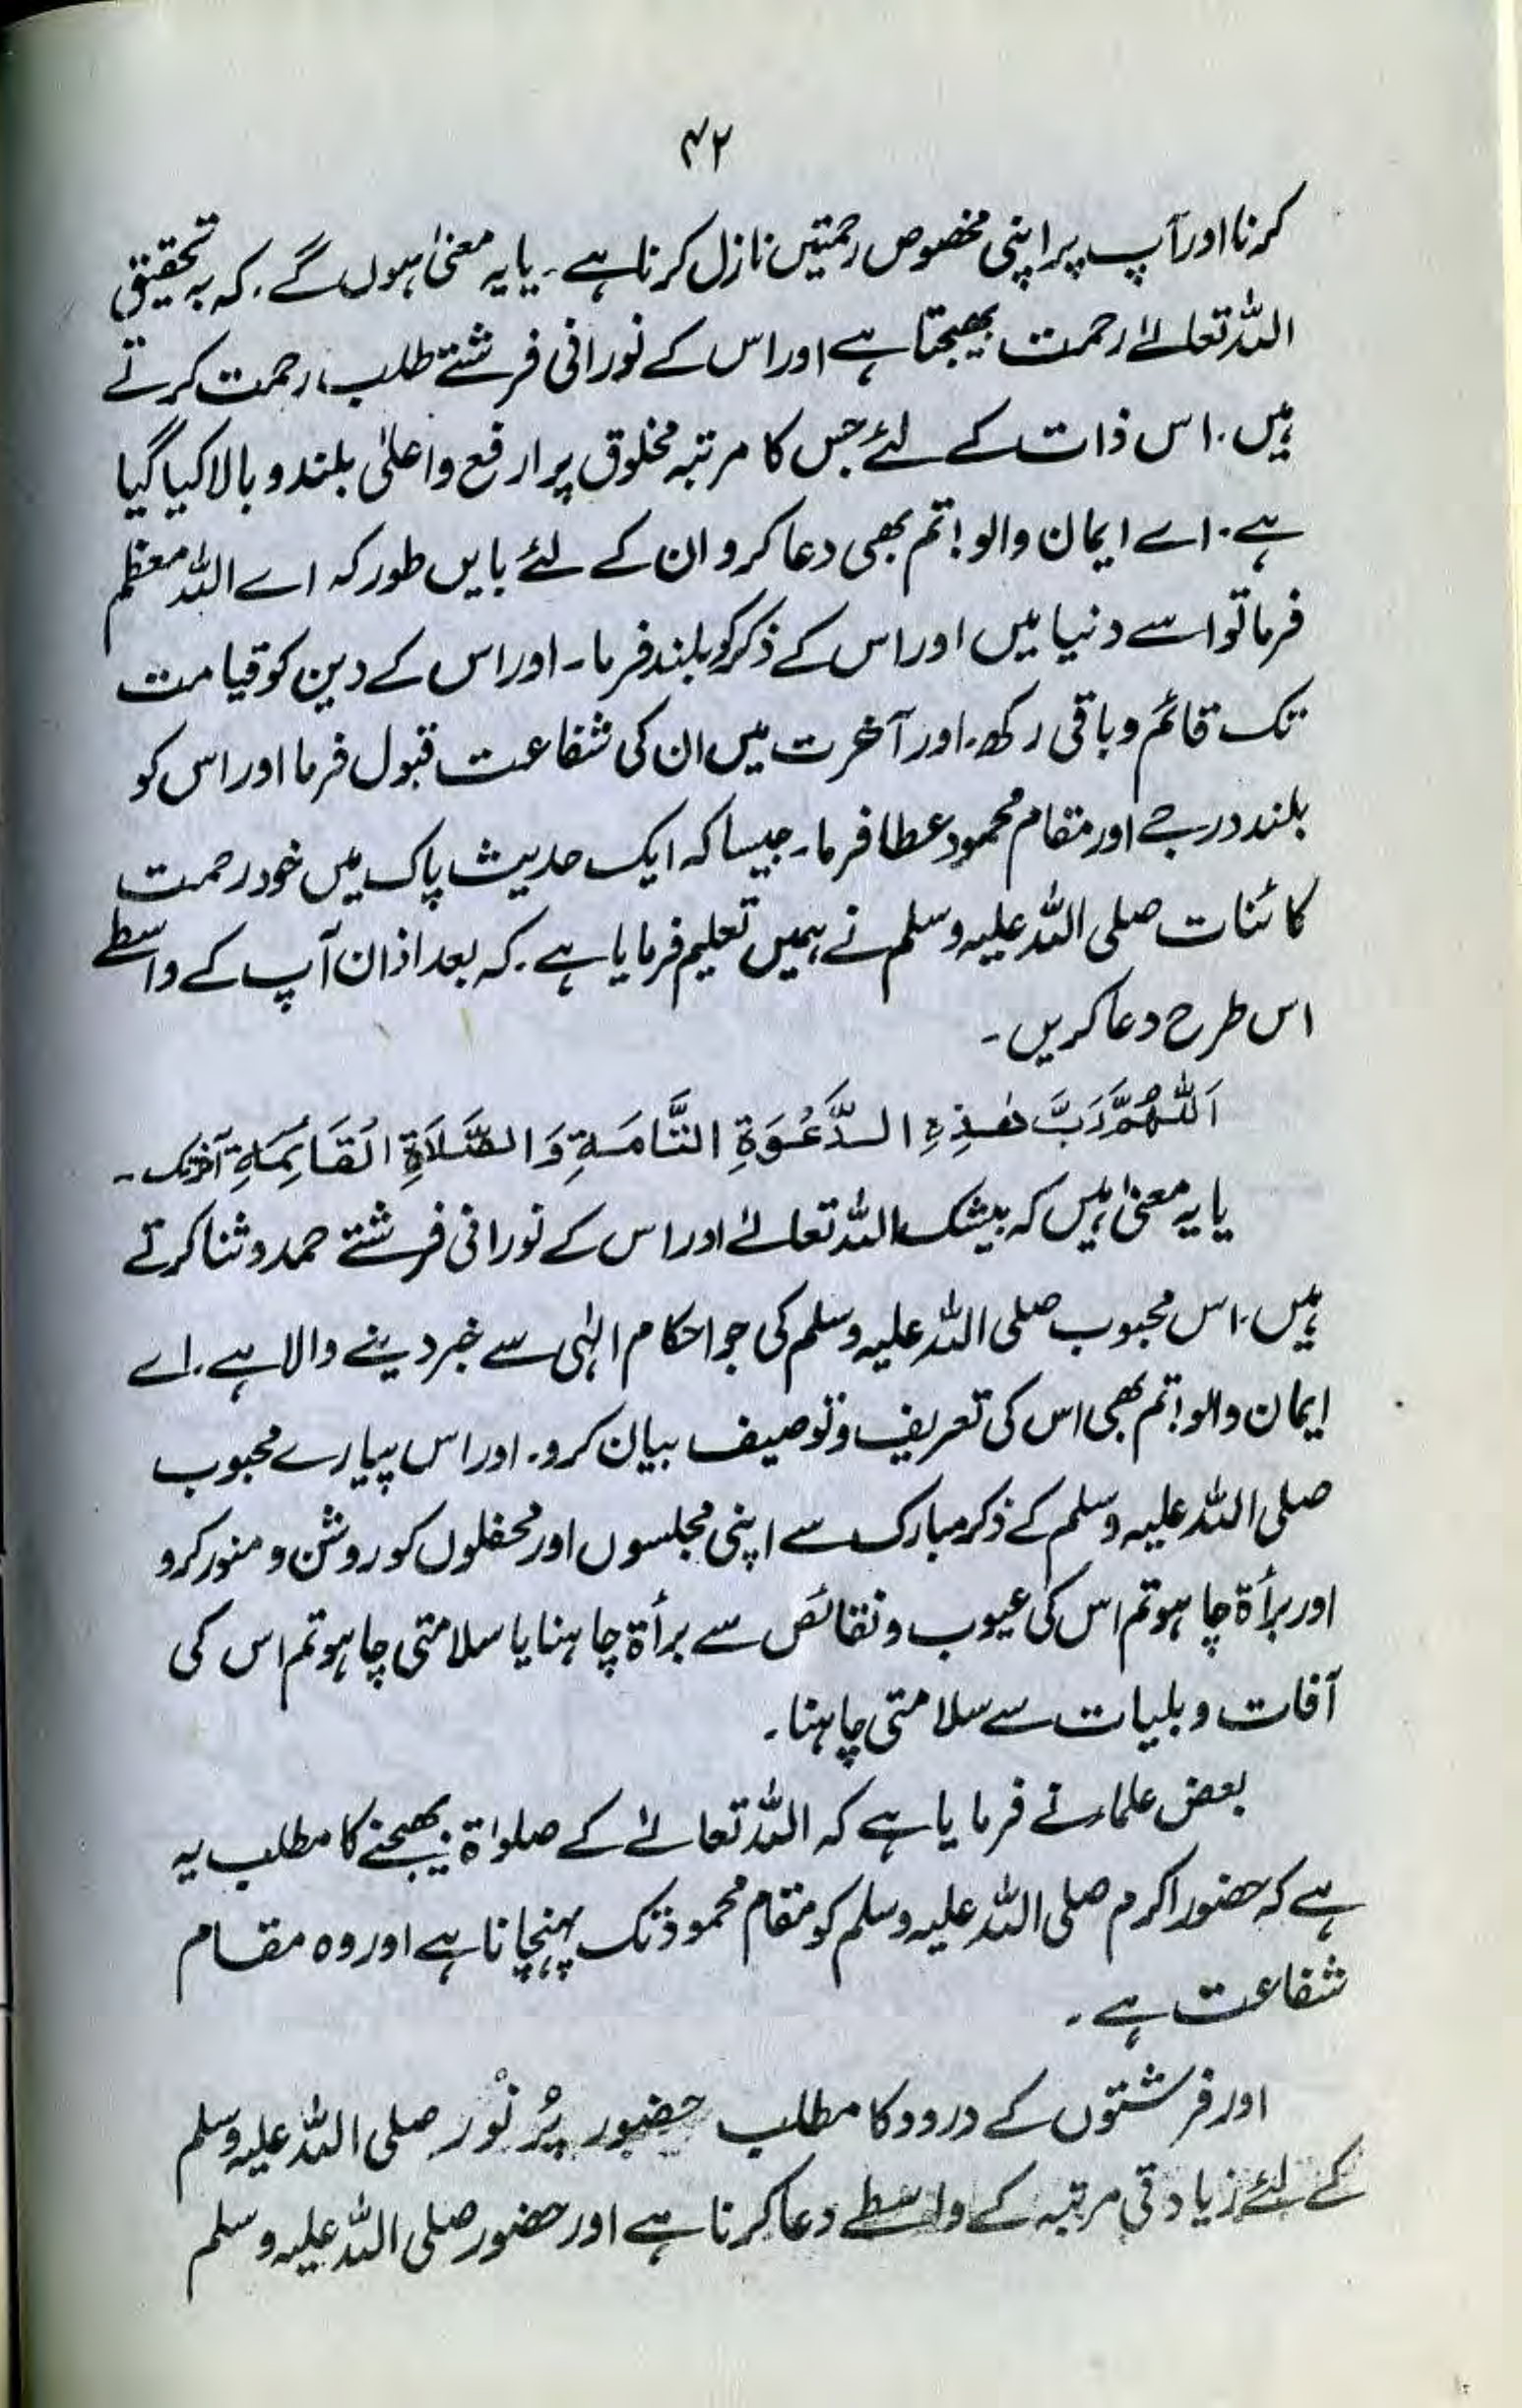 ۴۲
کرنا اور آپ پر اپنی مخصوص رحمتیں نازل کرنا ہے۔ یا یہ معنیٰ ہوں گے۔ کہ بہ تحقیق
اللہ تعالےٰ رحمت بھیجتا ہے اور اس کے نورانی فرشتے طلب رحمت کرتے
ہیں۔ اس ذات کے لئے جس کا مرتبہ مخلوق پر ارفع و اعلیٰ بلند و بالا کیا گیا
ہے۔ اے ایمان والو! تم بھی دعا کرو ان کے لئے بایں طور کہ اے اللہ معظم
فرما تو اسے دنیا میں اور اس کے ذکر کو بلند فرما۔ اور اس کے دین کو قیامت
تک قائم و باقی رکھ۔ اور آخرت میں ان کی شفاعت قبول فرما اور اس کو
بلند درجے اور مقام محمود عطا فرما۔ جیسا کہ ایک حدیث پاک میں خود رحمت
کائنات صلی اللہ علیہ وسلم نے ہمیں تعلیم فرمایا ہے۔ کہ بعد اذان آپ کے واسطے
اس طرح دعا کریں۔
اَللّٰھُمَّ رَبَّ ھٰذِہِ الدَّعْوَۃِ التَّامَۃِ وَالصَّلَاۃِ الْقَائِمَۃِ آخر تک۔
یا یہ معنیٰ ہیں کہ بیشک اللہ تعالےٰ اور اس کے نورانی فرشتے حمد و ثنا کرتے
ہیں۔ اس محبوب صلی اللہ علیہ وسلم کی جو احکام الہٰی سے خبر دینے والا ہے۔ اے
ایمان والو! تم بھی اس کی تعریف و توصیف بیان کرو۔ اور اس پیارے محبوب
صلی اللہ علیہ وسلم کے ذکر مبارک سے اپنی مجلسوں اور محفلوں کو روشن و منور کرو
اور برأۃ چاہو تم اس کی عیوب و نقائص سے برأۃ چاہنا یا سلامتی چاہو تم اس کی
آفات و بلیات سے سلامتی چاہنا۔
بعض علماء نے فرمایا ہے کہ اللہ تعالےٰ کے صلوٰۃ بھیجنے کا مطلب یہ
ہے کہ حضور اکرم صلی اللہ علیہ وسلم کو مقام محمود تک پہنچانا ہے اور وہ مقام
شفاعت ہے۔
اور فرشتوں کے درود کا مطلب حضور پُر نُور صلی اللہ علیہ وسلم
کے لئے زیادتی مرتبہ کے واسطے دعا کرنا ہے اور حضور صلی اللہ علیہ وسلم